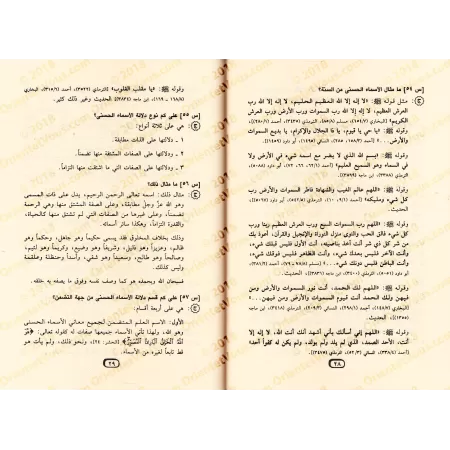 س [٥٤] ما مثال الأسماء الحسنى من السنة؟
ج مثال قوله ﷺ: «لا إله إلا الله العظيم الحليم، لا إله إلا الله رب
العرش العظيم، لا إله إلا الله رب السموات ورب الأرض ورب العرش
الكريم»
وقوله ﷺ: «يا حي يا قيوم، يا ذا الجلال والإكرام، يا بديع السموات
والأرض...»
وقوله ﷺ: «بسم الله الذي لا يضر مع اسمه شيء في الأرض ولا
في السماء وهو السميع العليم»
وقوله ﷺ: «اللهم عالم الغيب والشهادة فاطر السموات والأرض رب
كل شيء ومليكه»
وقوله ﷺ: «اللهم رب السموات السبع ورب العرش العظيم ربنا ورب
كل شيء فالق الحب والنوى منزل التوراة والإنجيل والقرآن، أعوذ بك
من شر كل ذي شر أنت آخذ بناصيته، أنت الأول فليس قبلك شيء،
وأنت الآخر فليس بعدك شيء، وأنت الظاهر فليس فوقك شيء، وأنت
الباطن فليس دونك شيء...»
الحديث.
وقوله ﷺ: «اللهم لك الحمد، أنت نور السموات والأرض ومن
فيهن ولك الحمد أنت قيوم السموات والأرض ومن فيهن...»
الحديث.
وقوله ﷺ: «اللهم إني أسألك بأني أشهد أنك أنت الله، لا إله إلا
أنت، الأحد الصمد، الذي لم يلد ولم يولد، ولم يكن له كفواً أحد»
٢٨
وقوله ﷺ: «يا مقلب القلوب»
الحديث وغير ذلك كثير.
س [٥٥] على كم نوع دلالة الأسماء الحسنى؟
ج هي على ثلاثة أنواع:
١ ـ دلالتها على الذات مطابقة.
٢ ـ دلالتها على الصفات المشتقة منها تضمناً.
٣ ـ دلالتها على الصفات التي ما اشتقت منها التزاماً.
س [٥٦] ما مثال ذلك؟
ج مثال ذلك: اسمه تعالى الرحمن الرحيم، يدل على ذات المسمى
وهو الله عز وجل مطابقة، وعلى الصفة المشتق منها وهي الرحمة
تضمناً، وعلى غيرها من الصفات التي لم تشتق منها كالحياة،
والقدرة التزاماً، وهكذا سائر أسمائه.
وذلك بخلاف المخلوق فقد يسمى حكيماً وهو جاهل، وحكماً وهو
ظالم، وعزيزاً وهو ذليل، وشريفاً وهو وضيع، وكريماً وهو لئيم،
وصالحاً وهو طالح، وسعيداً وهو شقي، وأسداً وحنظلة وعلقمة
وليس كذلك.
فسبحان الله وبحمده هو كما وصف نفسه وفوق ما يصفه به خلقه.
س [٥٧] على كم قسم دلالة الأسماء الحسنى من جهة التضمن؟
ج هي على أربعة أقسام:
الأول: الاسم العلم المتضمن لجميع معاني الأسماء الحسنى
وهو الله، ولهذا تأتي الأسماء جميعها صفات له كقوله تعالى: ﴿هُوَ
اللَّهُ الْخَالِقُ الْبَارِئُ الْمُصَوِّرُ﴾ [الحشر: ٢٤]، ونحو ذلك، ولم يأت هو
قط تابعاً لغيره من الأسماء.
٢٩